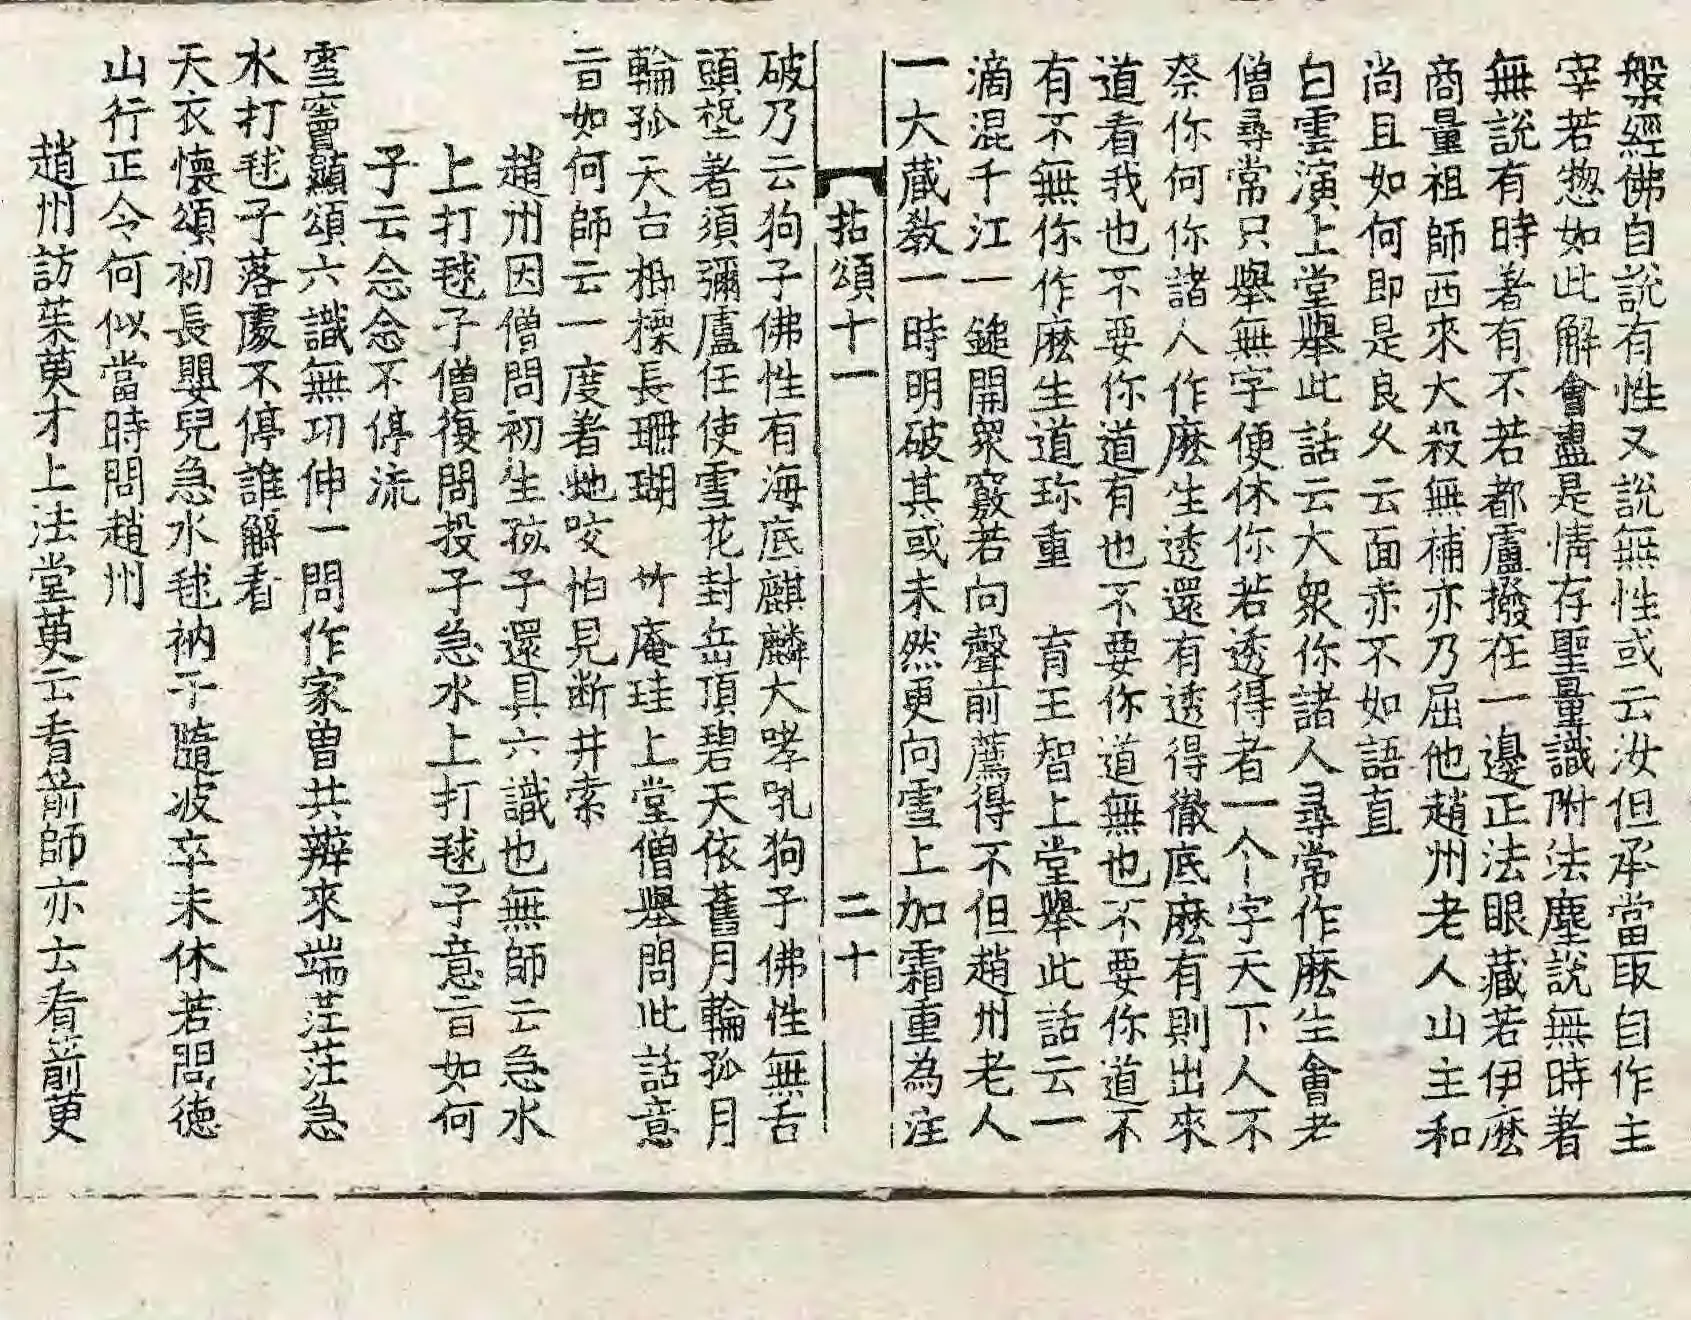 槃經佛自說有性又說無性或云汝但承當取自作主
宰若惣如此解會盡是情存聖量識附法塵說無時著
無說有時著有不若都盧撥在一邊正法眼藏若伊麽
商量祖師西來大殺無補亦乃屈他趙州老人山主和
尚且如何即是良久云面赤不如語直
白雲演上堂舉此話云大衆你諸人尋常作麽生會老
僧尋常只舉無字便休你若透得者一个字天下人不
奈你何你諸人作麽生透還有透得徹底麽有則出來
道看我也不要你道有也不要你道無也不要你道不
有不無你作麽生道珎重　育王智上堂舉此話云一
滴混千江一鎚開衆竅若向聲前薦得不但趙州老人
一大蔵教一時明破其或未然更向雪上加霜重為注
拈頌十一　二十
破乃云狗子佛性有海底麒麟大哮吼狗子佛性無舌
頭拕著須彌盧任使雪花封岳頂碧天依舊月輪孤月
輪孤天台楖㮚長珊瑚　竹庵珪上堂僧舉問此話意
旨如何師云一度著虵咬怕見断井索
趙州因僧問初生孩子還具六識也無師云急水
上打毬子僧復問投子急水上打毬子意旨如何
子云念念不停流
雪竇顯頌六識無功伸一問作家曽共辨來端茫茫急
水打毬子落處不停誰解看
天衣懷頌初長嬰兒急水毬衲子隨波卒未休若問德
山行正令何似當時問趙州
趙州訪茱萸才上法堂萸云看箭師亦云看箭萸